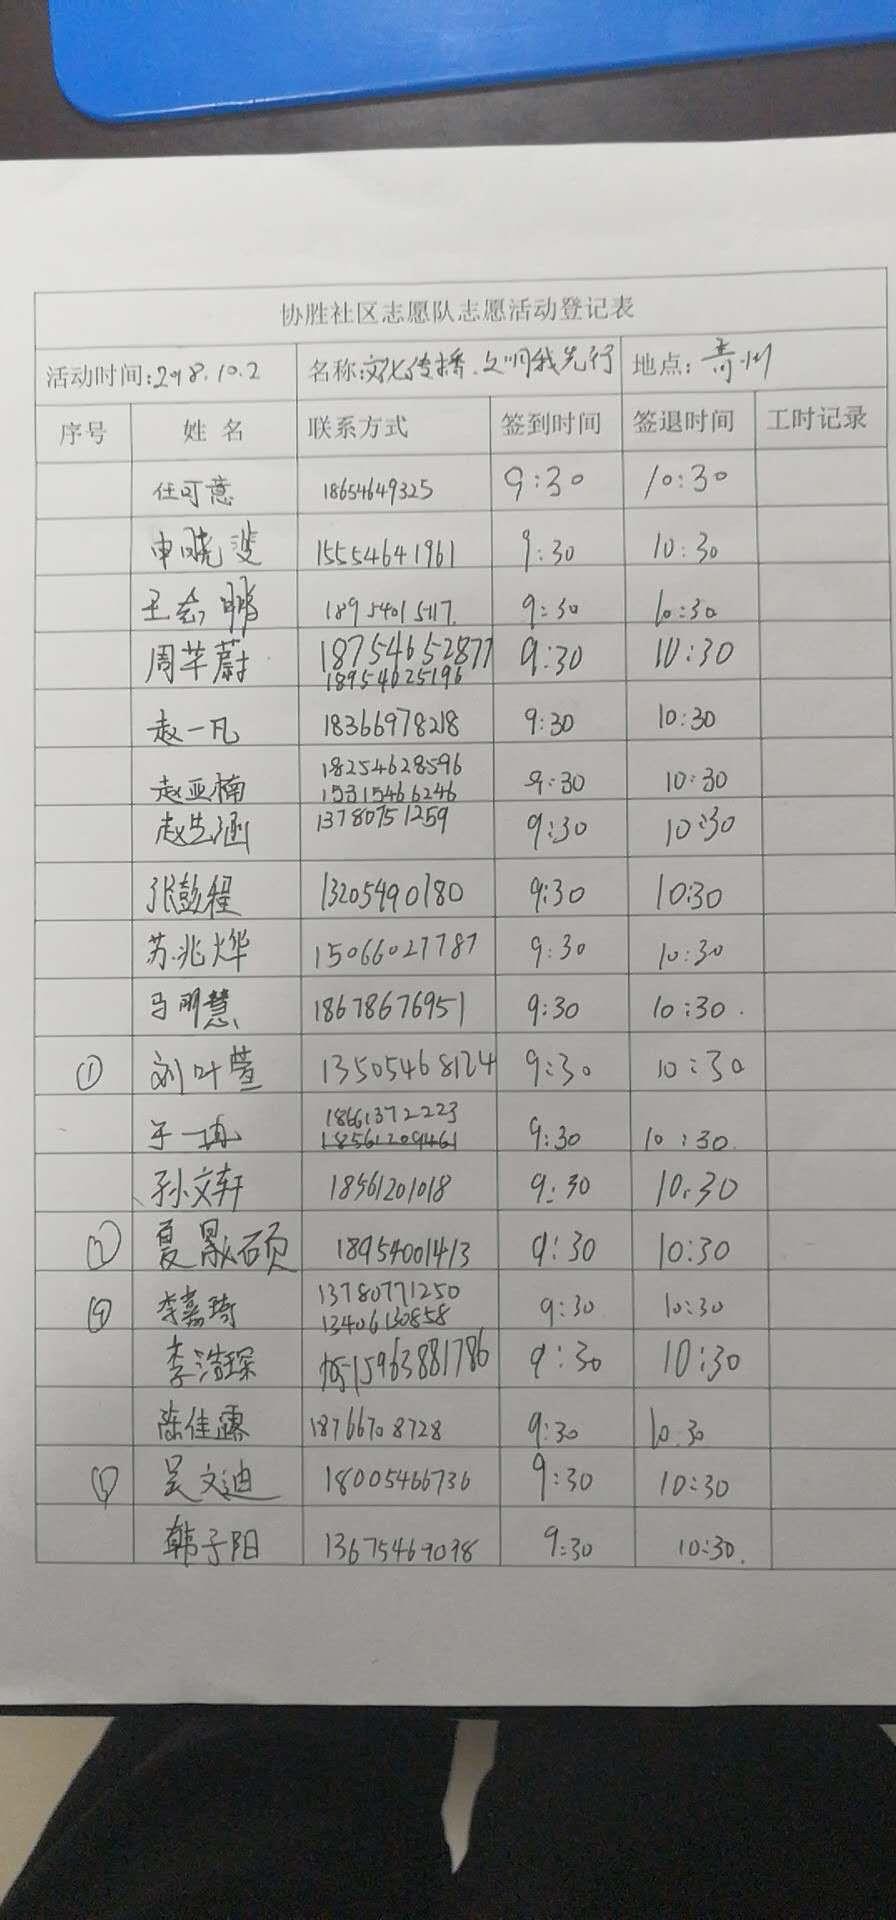 协胜社区志愿队志愿活动登记表
活动时间:2018.10.2 名称:文化传播.文明我先行 地点:青州
序号 姓名 联系方式 签到时间 签退时间 工时记录
任可意 18654649325 9:30 10:30
申晓斐 15554641961 9:30 10:30
王会鹏 18954015117. 9:30 10:30
周芊蔚 18754652877 9:30 10:30
18954625196
赵一凡 18366978218 9:30 10:30
18254628596
赵亚楠 15315466246 9:30 10:30
赵艺涵 13780751259 9:30 10:30
张彭程 13205490180 9:30 10:30
苏兆烨 15066027787 9:30 10:30
马明慧 18678676951 9:30 10:30.
① 刘叶萱 13505468124 9:30 10:30
18661372223
于一冉 18561209461 9:30 10:30.
孙文轩 18561201018 9:30 10:30
② 夏 硕 18954001413 9:30 10:30
13780771250
④ 李嘉琦 13406130858 9:30 10:30
李浩琛 15963881786 9:30 10:30
陈佳露 18766708728 9:30 10:30
⑤ 吴文迪 18005466736 9:30 10:30
韩子阳 13675469098 9:30 10:30.